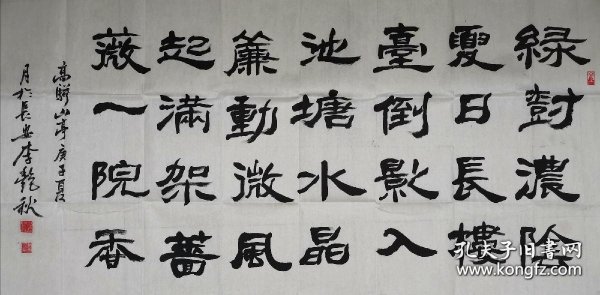 緑樹濃陰
夏日長樓
臺倒影入
池塘水晶
簾動微風
起滿架薔
薇一院香
高駢山亭庚子夏
月於長安李乾秋
孔夫子旧书网
www.kongfz.com